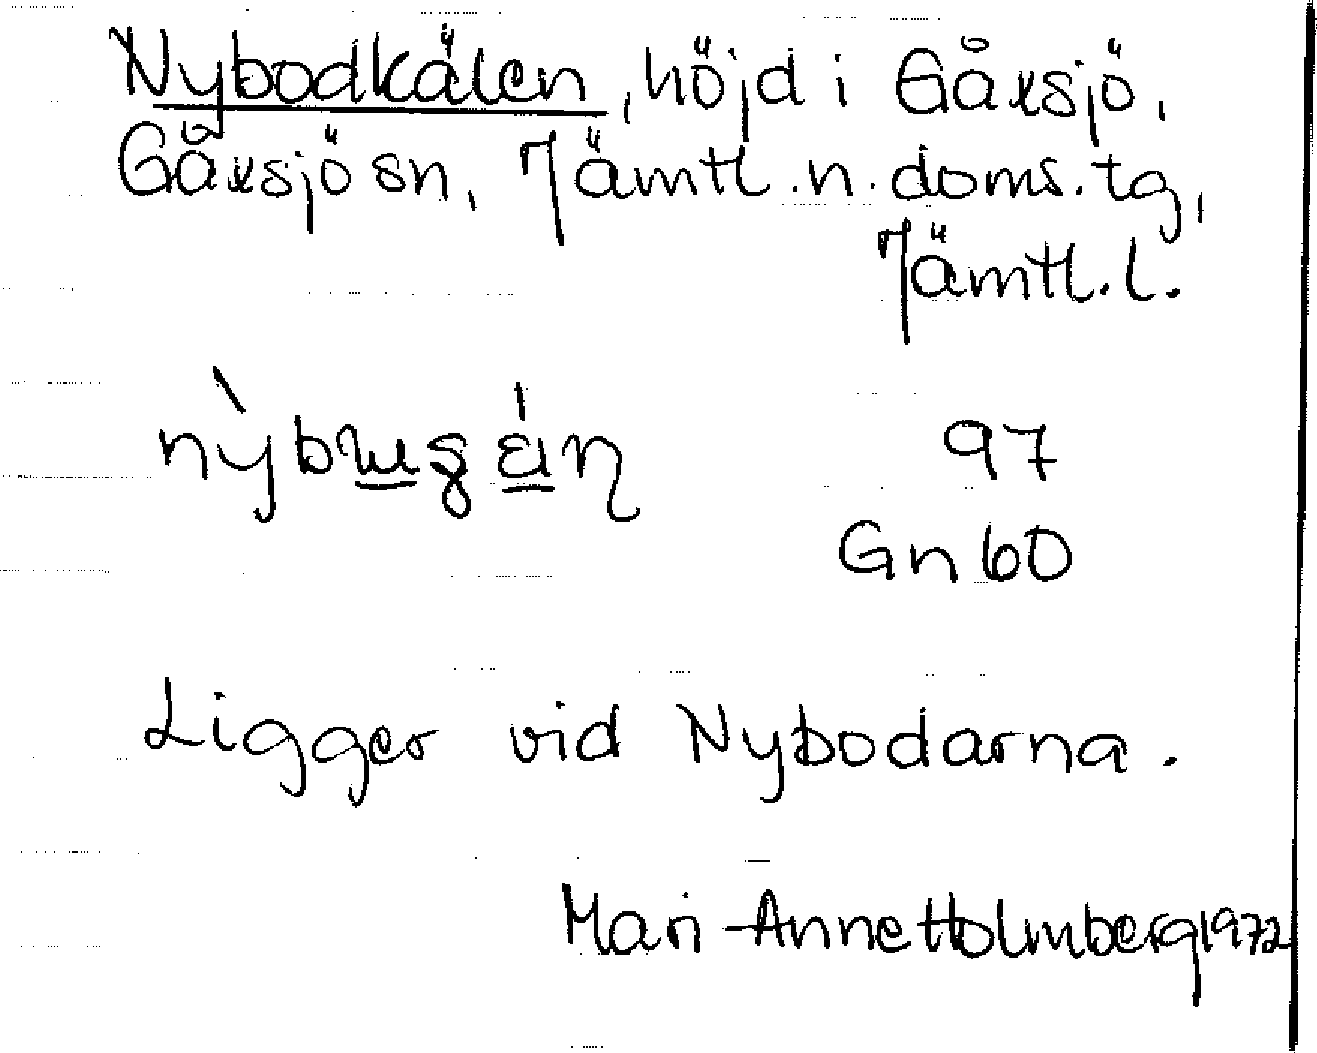 Nybodkälen, höjd i Gåxsjö,
Gåxsjö sn, Jämtl.n.doms.tg,
Jämtl.l.
97
Gn 60
Ligger vid Nybodarna.
Mari-Anne Holmberg 1972